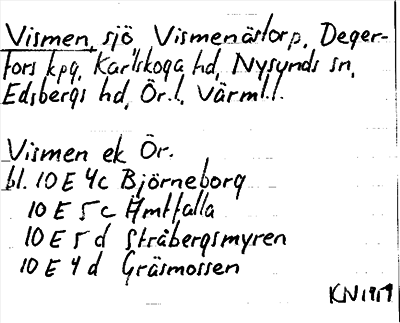 Vismen, sjö Vismenästorp, Deger-
fors kpg, Karlskoga hd, Nysunds sn,
Edsbergs hd, Ör.l., Värml.l.
Vismen ek Ör.
bl. 10 E 4c Björneborg
10 E 5 c Åmtfalla
10 E 5 d Stråbergsmyren
10 E 4 d Gräsmossen